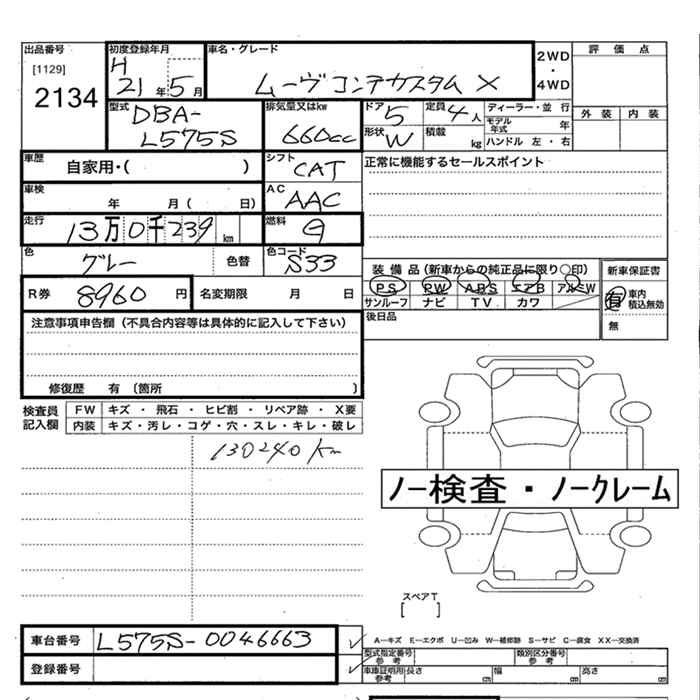 出品番号 初度登録年月 車名・グレード 2WD ・ 4WD 評価点
[1129] H
2134 21年 5月 ムーヴコンテカスタム X
型式 DBA- L575S 排気量又はkw 660cc ドア 5 定員 4人 ディーラー・並 行 外装 内装
モデル年式 年
形状 W 積載 kg ハンドル 左・右
車歴 自家用・( ) シフト CAT 正常に機能するセールスポイント
車検 年 月( 日) AC AAC
走行 13万0千239km 燃料 G
色 グレー 色替 色コード S33 装備品(新車からの純正品に限り○印) 新車保証書
R券 8960円 名変期限 月 日 PS PW ABS エアB アルミW 有 車内積込無効
サンルーフ ナビ TV カワ 無
注意事項申告欄(不具合内容等は具体的に記入して下さい) 後日品
修復歴 有(箇所 )
検査員記入欄 FW キズ・飛石・ヒビ割・リペア跡・X要
内装 キズ・汚レ・コゲ・穴・スレ・キレ・破レ
130240km
ノー検査・ノークレーム
スペアT
[ ]
車台番号 L575S-0046663 ✓ A−キズ E−エクボ U−凹み W−補修跡 S−サビ C−腐食 XX−交換済
型式指定番号 参考 類別区分番号 参考
登録番号 ✓ 車庫証明用 参考 長さ cm 幅 cm 高さ cm